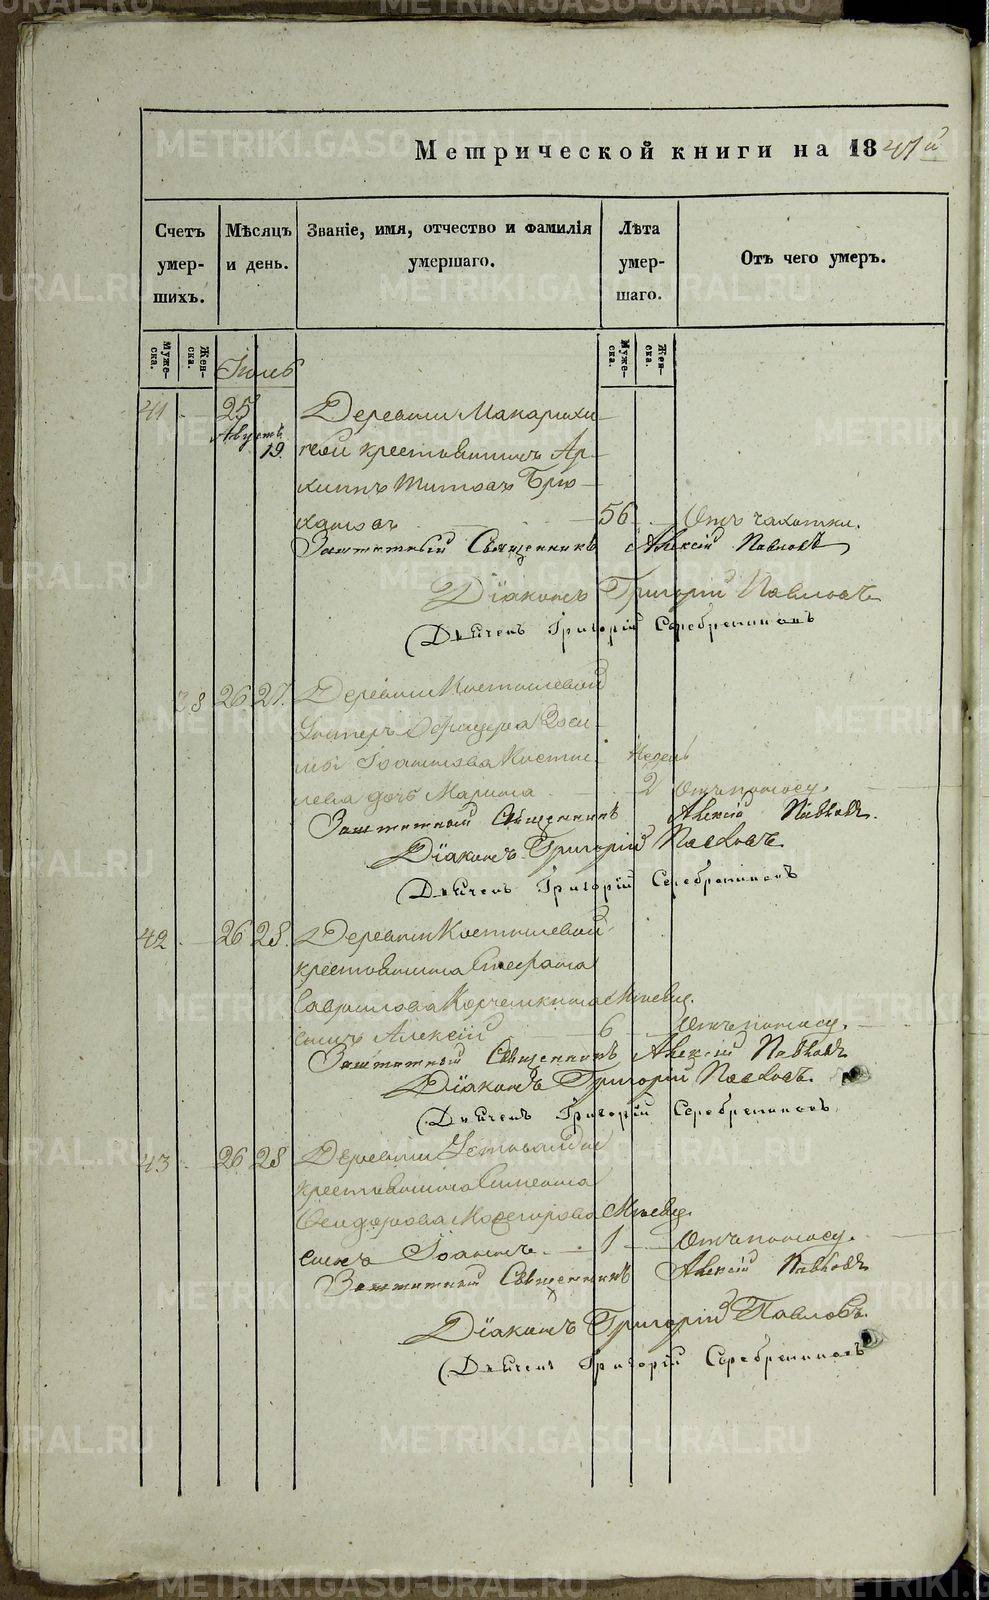 Метрической книги на 1847й
Счетъ умер- шихъ.
Мѣсяцъ и день.
Званіе, имя, отчество и фамилія умершаго.
Лѣта умер- шаго.
Отъ чего умеръ.
Муже- ска.
Жен- ска.
Муже- ска.
Жен- ска.
Іюль
41 25 Деревни Макарихи-
Августъ
19. ной крестьянинъ Ар-
хиппъ Титовъ Брю-
хановъ 56 Отъ чахотки.
Заштатный Священникъ Алексій Павловъ
Діаконъ Григорій Павловъ
Дьячекъ Григорій Серебренниковъ
28 26 27. Деревни Костылевой
Унтеръ Офицера Васи-
лія Іоаннова Косты- Недель
лева дочь Марина 2 Отъ поносу.
Заштатный Священникъ Алексій Павловъ.
Діаконъ Григорій Павловъ.
Дьячекъ Григорій Серебренниковъ
42 26 28. Деревни Костылевой
крестьянина Стефана
Гаврилова сынъ Алексій 6 Месяц. Отъ поносу.
Заштатный Священникъ Алексій Павловъ
Діаконъ Григорій Павловъ.
Дьячекъ Григорій Серебренниковъ
43 26 28 Деревни
крестьянина Симеона
Месяц.
сынъ Іоаннъ 1 Отъ поносу.
Заштатный Священникъ Алексій Павловъ
Діаконъ Григорій Павловъ.
Дьячекъ Григорій Серебренниковъ
METRIKI.GASO-URAL.RU